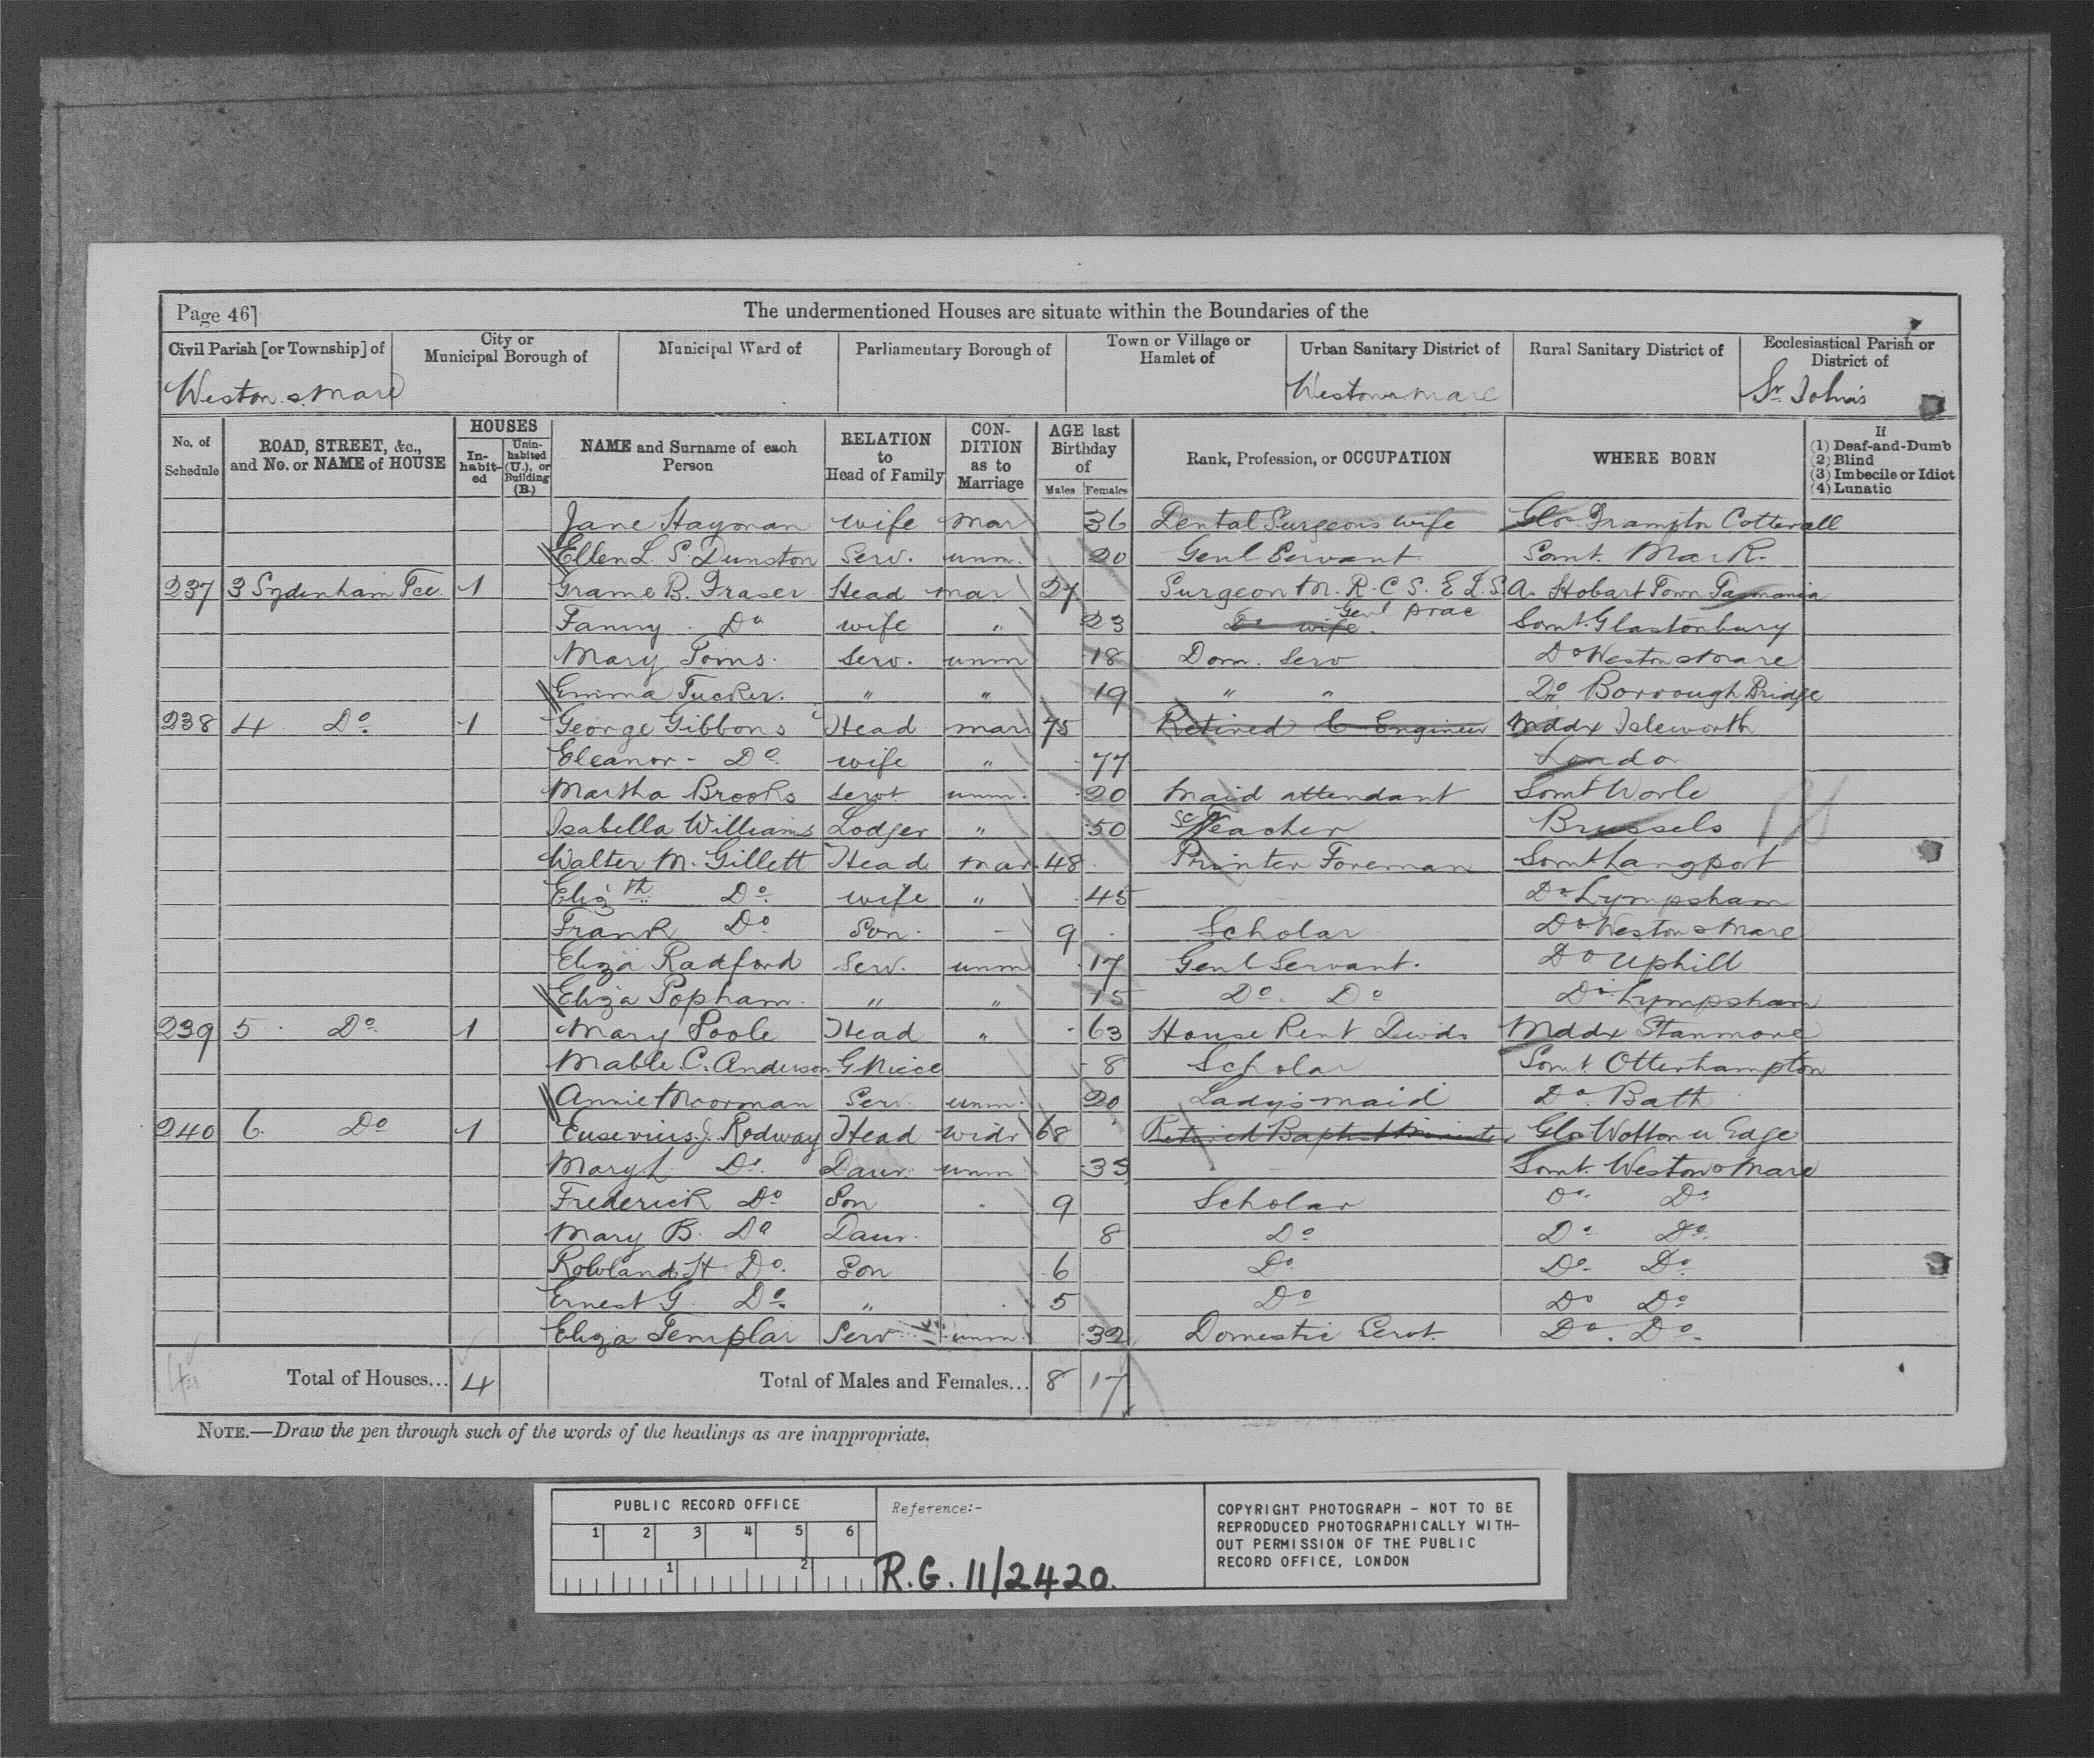 Page 46]
The undermentioned Houses are situate within the Boundaries of the
Civil Parish [or Township] of
City or Municipal Borough of
Municipal Ward of
Parliamentary Borough of
Town or Village or Hamlet of
Urban Sanitary District of
Rural Sanitary District of
Ecclesiastical Parish or District of
Weston s. Mare
Weston s Mare
St. John's
No. of Schedule
ROAD, STREET, &c., and No. or NAME of HOUSE
HOUSES
In-habit-ed
Unin-habited (U.), or Building (B.)
NAME and Surname of each Person
RELATION to Head of Family
CON-DITION as to Marriage
AGE last Birthday of
Males Females
Rank, Profession, or OCCUPATION
WHERE BORN
If
(1) Deaf-and-Dumb
(2) Blind
(3) Imbecile or Idiot
(4) Lunatic
Jane Hayman wife mar 36 Dental Surgeons wife Glos Frampton Cotterall
Ellen L. S. Dunston Serv. unm. 20 Genl Servant Somt. Mark.
237 3 Sydenham Tce. 1 Grame B. Fraser Head mar 27 Surgeon M.R.C.S.E L.S.A. Hobart Town Tasmania
Genl Prac
Fanny Do wife " 23 Do wife. Somt. Glastonbury
Mary Toms. Serv. unm 18 Dom. Serv Do Weston s Mare
Emma Tucker. " " 19 " " Do Borrough Bridge
238 4 Do. 1 George Gibbons Head mar 75 Retired C Engineer Middx Isleworth
Eleanor - Do wife " 77 London
Martha Brooks Servt unm. 20 Maid attendant Somt Worle
Isabella Williams Lodger " 50 Sc Teacher Brussels
Walter M. Gillett Head mar 48 Printer Foreman Somt Langport
Elizth Do. wife " 45 Do Lympsham
Frank Do Son. - 9 Scholar Do Weston s Mare
Eliza Radford Serv. unm 17 Genl Servant. Do Uphill
Eliza Popham. " " 15 Do. Do Do Lympsham
239 5 Do. 1 Mary Poole Head " 63 House Rent Divids Middx Stanmore
Mable C. Anderson G Niece 8 Scholar Somt Otterhampton
Annie Moorman Serv unm. 20 Ladys maid Do. Bath
240 6. Do 1 Eusevius J. Rodway Head widr 68 Retired Baptist Minister Glos Wotton u Edge
Mary L. Do. Daur. unm 35 Somt. Weston s Mare
Frederick Do Son - 9 Scholar Do. Do
Mary B. Do Daur. 8 Do Do Do.
Rowland H Do. Son 6 Do Do. Do.
Ernest G. Do. " 5 Do Do Do
Eliza Templar Serv unm. 32 Domestic Servt. Do. Do.
Total of Houses... 4
Total of Males and Females... 8 17
NOTE.—Draw the pen through such of the words of the headings as are inappropriate.
PUBLIC RECORD OFFICE
1 2 3 4 5 6
1 2
Reference:-
R.G. 11/2420.
COPYRIGHT PHOTOGRAPH - NOT TO BE
REPRODUCED PHOTOGRAPHICALLY WITH-
OUT PERMISSION OF THE PUBLIC
RECORD OFFICE, LONDON